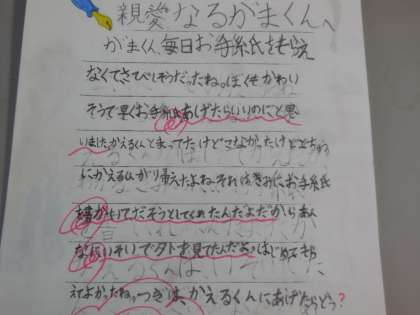 親愛なるがまくんへ
がまくん、毎日お手紙をもらえ
なくてさびしそうだったね。ぼくもかわい
そうで早くお手紙あげたらいいのにと思
いました。かえるくんと
にかえるくんが帰えたよね。それはきみにお手紙
を書いてだそうとしてくれたんだよだからあん
なにいそいで外を見てたんだよ。はじめてもら
えてよかったね。つぎは、かえるくんにあげたらどう?